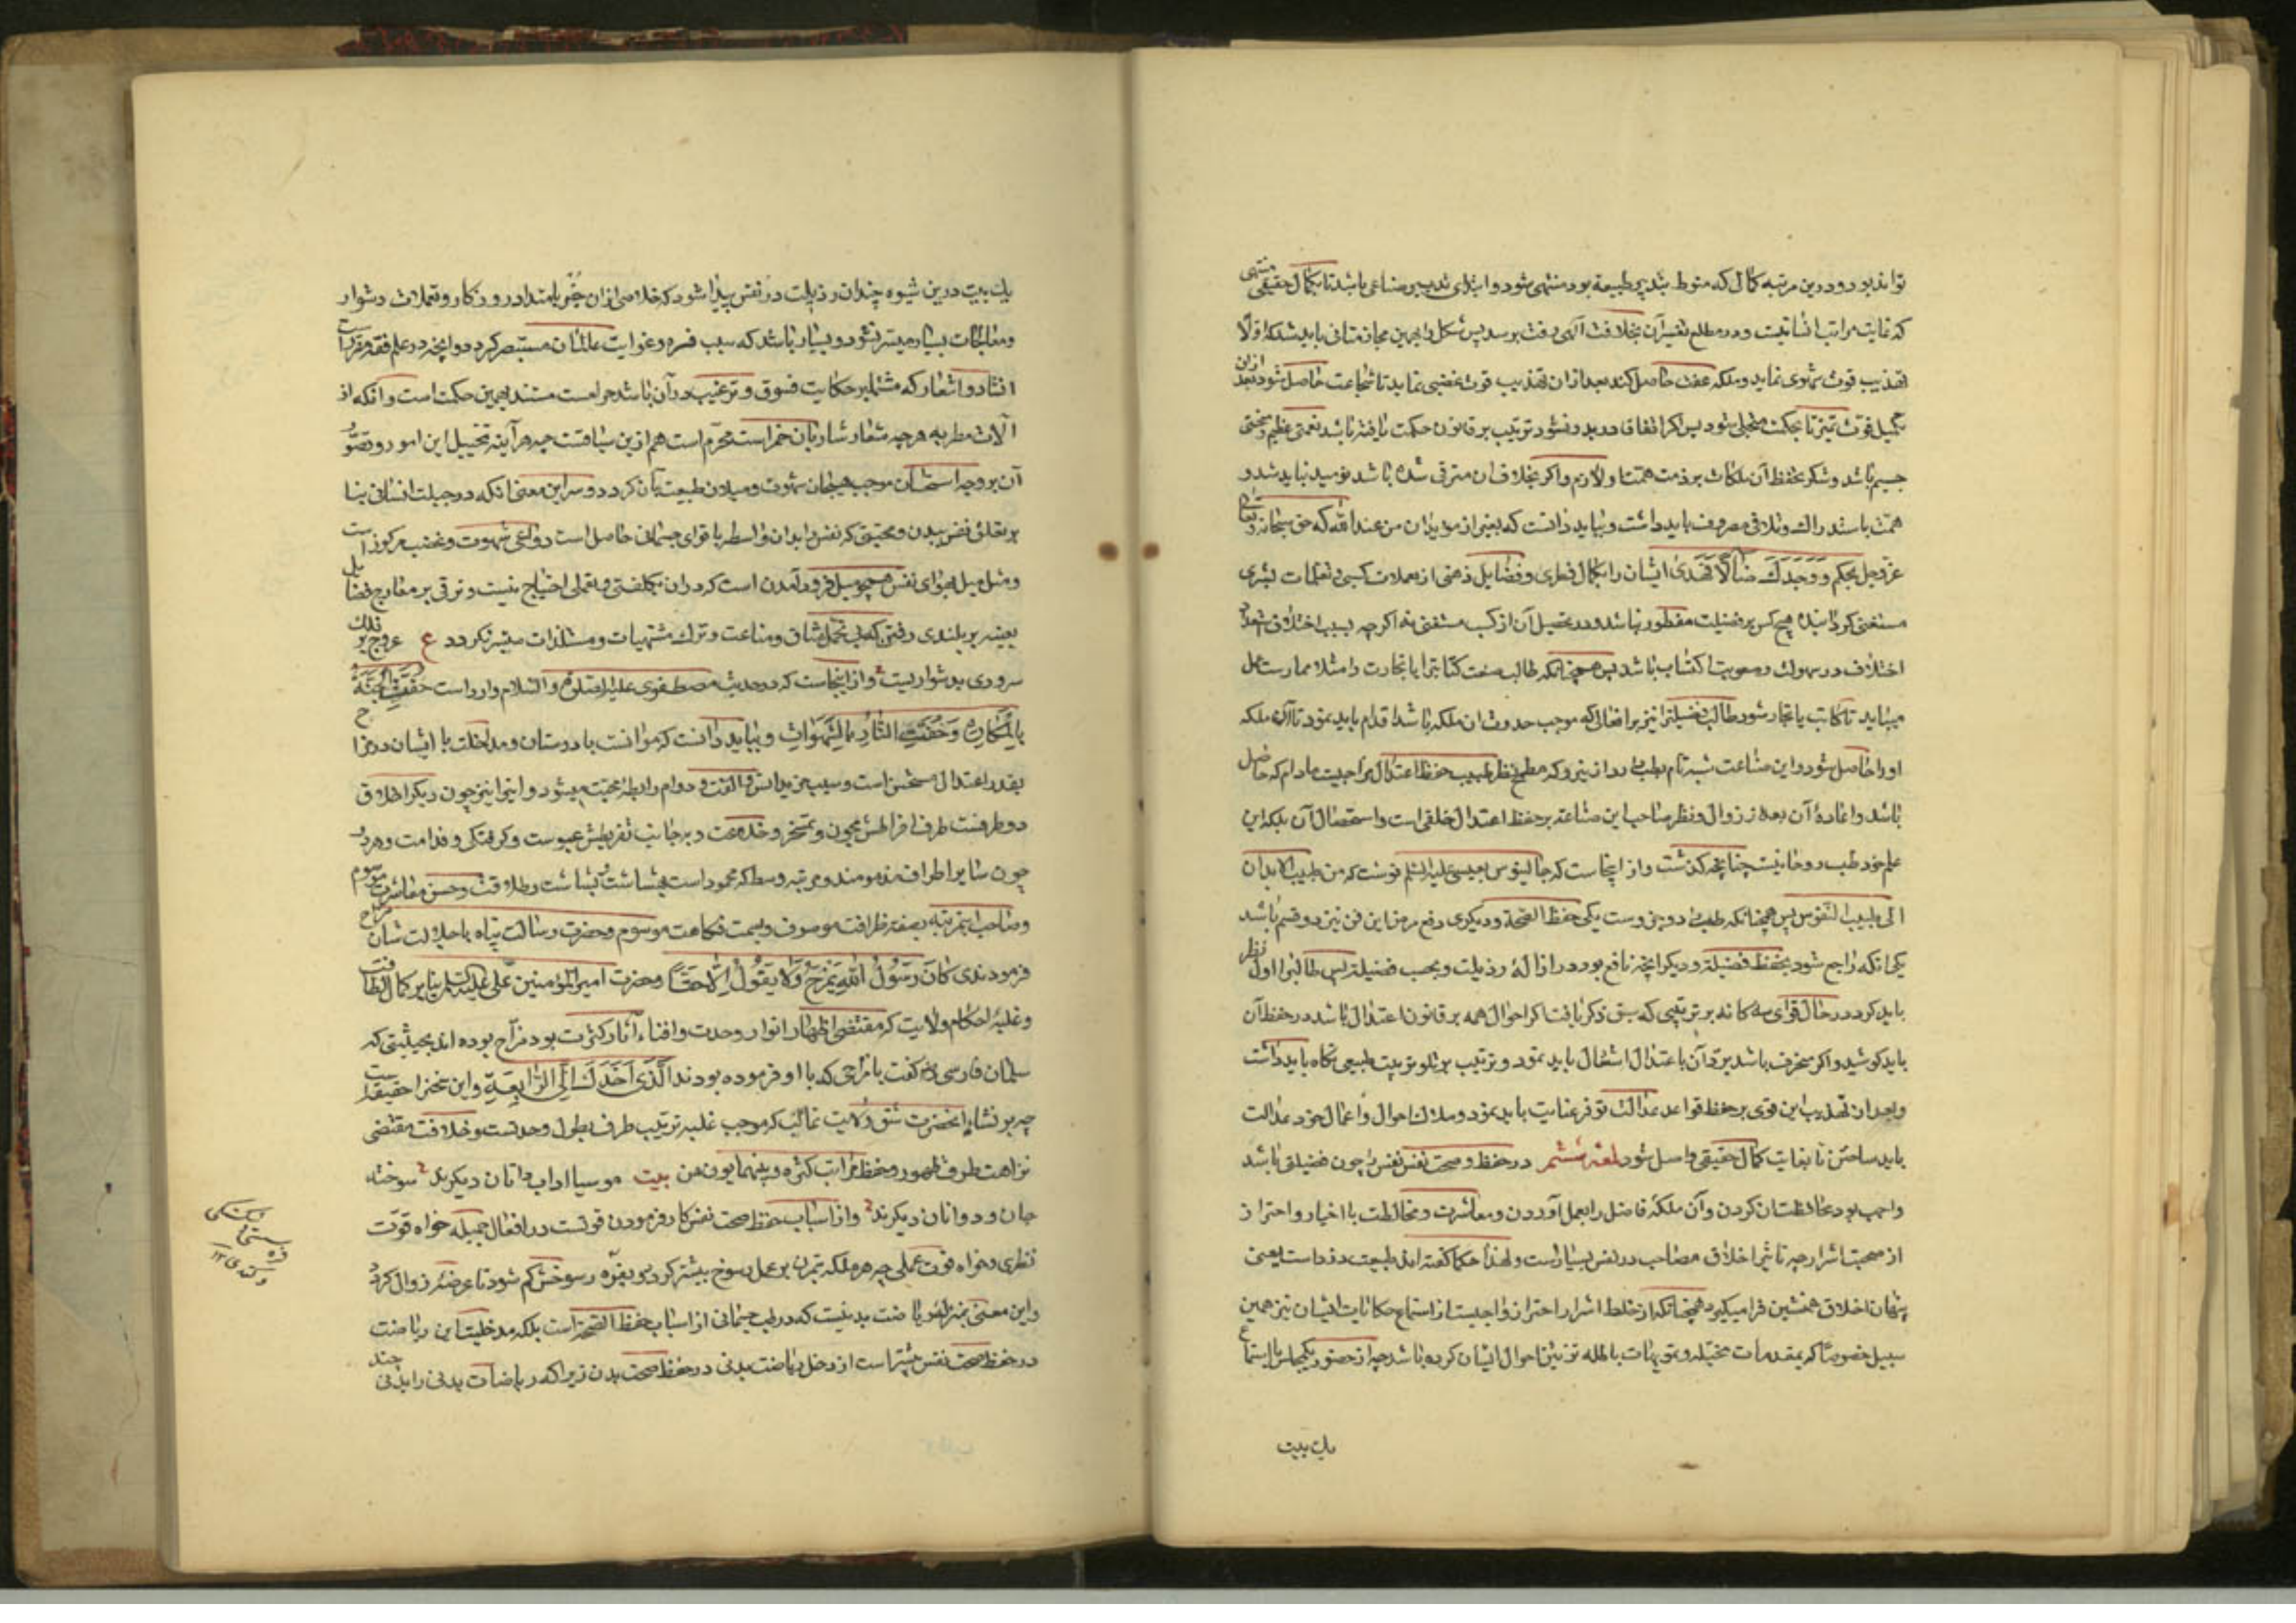 تواند بود و درین مرتبه کمال که منوط بتدبیر طبیعة بود منتهی شود و ابتدای تدبیر صناعی باشد تا بکمال حقیقی منتهی
که غایت مراتب انسانیت و در مطلع تفسیر آن بخلافت الهی رفت برسد پس سالک را بهمین محاذات باید شد که اولا
تهذیب قوت شهوی نماید و ملکه عفت حاصل کند بعد ازان تهذیب قوت غضبی نماید تا شجاعت حاصل شود بعد ازین
تکمیل قوت تمیز تا بحکمت متحلی شود پس اگر اتفاق در بدو نشو ترتیب بر قانون حکمت یافته باشد نعمتی عظیم و منحتی
جسیم باشد و شکر بحفظ آن ملکات بر ذمت همت او لازم و اگر بخلاف آن مترقی شده باشد نومید نباید شد و
همت باستدراک و تلافی مصروف باید داشت و بباید دانست که بغیر از مویدان من عند الله که حق سبحانه و تعالی
عز و جل بحکم وَوَجَدَكَ ضَالًّا فَهَدَى ایشان را بکمال فطری و فضایل ذهنی از تعملات کسبی و تعلمات بشری
مستغنی گردانیده هیچ کس بر فضیلت مفطور نباشد و در تحصیل آن از کسب مستغنی نه اگرچه بسبب اختلاف استعداد
اختلاف در سهولت و صعوبت اکتساب باشد پس همچنانکه طالب صنعت کتابت را یا تجارت را مثلا ممارست عمل
میباید تا کاتب یا تجار شود طالب فضیلت را نیز بر افعالی که موجب حدوث آن ملکه باشد اقدام باید نمود تا آن ملکه
او را حاصل شود و این صناعت شبه تام بطب دارد از نیرو که مطمح نظر طبیب حفظ اعتدال مزاجیست مادام که حاصل
باشد و اعاده آن بعد از زوال و نظر صاحب این صناعة بر حفظ اعتدال خلقی است و استحصال آن بلکه این
علم خود طب روحانیست چنانچه گذشت و از اینجاست که جالینوس بعیسی علیه السلم نوشت که من طبیب الابدان
الی طبیب النفوس پس همچنانکه طب را دو جزوست یکی حفظ الصحة و دیگری دفع مرض این فن نیز دو قسم باشد
یکی آنکه راجع شود بحفظ فضیلة و دیگر آنچه نافع بود در ازاله رذیلت و بحسب فضیلة پس طالب را اول نظر
باید کرد در حال قوای سه گانه بر ترتیبی که سبق ذکر یافت اگر احوال همه بر قانون اعتدال باشد در حفظ آن
باید کوشید و اگر منحرف باشد برد آن باعتدال اشتغال باید نمود و ترتیب بر تلو ترتیب طبیعی نگاه باید داشت
و بعد از تهذیب این قوی بر حفظ قواعد عدالت توفر عنایت باید نمود و ملاک احوال و اعمال خود عدالت
باید ساختن تا بغایت کمال حقیقی واصل شود لمعه ششم در حفظ و صحت نفس نفس را چون فضیلتی باشد
واجب بود محافظت آن کردن و آن ملکه فاضل را بعمل آوردن و معاشرت و مخالطت با اخیار و احتراز
از صحبت اشرار چه تاثیر اخلاق مصاحب در نفس بسیارست و لهذا حکما گفته اند طبیعت دزد است یعنی
پنهان اخلاق همنشین فرا میگیرد و همچنانکه از خلط اشرار احتراز واجبیست از استماع حکایات ایشان نیز همین
سبیل خصوصا که بمقدمات مخیله و تمویهات باطله تزیین احوال ایشان کرده باشد چه از حضور یکمجلس یا استماع
یک بیت
یک بیت درین شیوه چندان رذیلت در نفس پیدا شود که خلاصی ازان جز بامتداد روزکار و تعملات دشوار
و معالجات بسیار میسر نشود و بسیار باشد که سبب فسره و غوایت عالمان مستبصر گردد و آنچه در علم فقه مقررست
انشاد و اشعار که مشتمل بر حکایت فسوق و ترغیب در آن باشد حرامست مستند بهمین حکمت است و آنکه از
آلات مطربه هرچه شعار شاربان خمر است محرم است هم از این سیاقست چه هر آینه تخییل این امور و تصور
آن بر وجه استحسان موجب هیجان شهوت و میلان طبیعت بآن گردد و سر این معنی آنکه در جبلت انسانی بنا
بر تعلق نفس ببدن و محبتی که نفس را بدان واسطه با قوای جسمانی حاصل است دواعی شهوت و غضب مرکوز است
و مثل میل بهوای نفس همچو میل فرود آمدن است که در آن بکلفتی و تعملی احتیاج نیست و ترقی بر معارج فضایل
بعینه بر بلندی رفتن که بی تحمل مشاق و متاعب و ترک مشتهیات و مستلذات میسر نگردد ع عروج بر فلک
سروری بدشواریست و از اینجاست که در حدیث مصطفوی علیه الصلوة و السلام وارد است حُفَّتِ الْجَنَّةُ
بِالْمَكَارِهِ وَحُفَّتِ النَّارُ بِالشَّهَوَاتِ و بباید دانست که موانست با دوستان و مداخلت با ایشان در مزاح
بقدر اعتدال مستحسن است و سبب مزید انس و الفت و دوام رابطه محبت میشود و این را نیز چون دیگر اخلاق
دو طرفست طرف افراطش مجون و تمسخر و خلاعت و بر جانب تفریطش عبوست و گرفتگی و فدامت و هر دو
چون سایر اطراف مذمومند و مرتبه وسط که محمود است بهشاشت و بشاشت و طلاقت و حسن معاشرت موسوم
و صاحب این مرتبه بصفت ظرافت موصوف و بسمت فکاهت موسوم و حضرت رسالت پناه با جلالت شان مزاح
فرمودندی كَانَ رَسُولُ اللهِ يَمْزَحُ وَلَا يَقُولُ إِلَّا حَقًّا و حضرت امیر المؤمنین علی علیه السلم بنابر کمال لطافت
و غلبه احکام ولایت که مقتضی اظهار انوار وحدت و افناء آثار کثرت بود مزاح بوده اند بحیثیتی که
سلمان فارسی رض گفت با مزاحی که با او فرموده بودند الَّذِي أَخَّرَكَ إِلَى الرَّابِعَةِ و این سخن را حقیقتیست
چه بر نشاه آنحضرت شق ولایت غالب که موجب غلبه ترتیب طرف بطون وحدتست و خلافت مقتضی
نزاهت طرف ظهور و حفظ مراتب کثرة و بینهما بون من بیت موسیا آداب دانان دیگرند سوخته
جان و دوانان دیگرند و از اسباب حفظ صحت نفس کار فرمودن قوتست در افعال جمیله خواه قوت
نظری و خواه قوت عملی چه هر ملکه بتمرن بر عمل رسوخ بیشتر گیرد و بفتره رسوخش کم شود تا عرضه زوال گردد
و این معنی بمنزلة ریاضت بدنیست که در طب جسمانی از اسباب حفظ الصحة است بلکه مدخلیت این ریاضت
در حفظ صحت نفس بیشتر است از دخل ریاضت بدنی در حفظ صحت بدن زیرا که ریاضات بدنی را بدنی چند